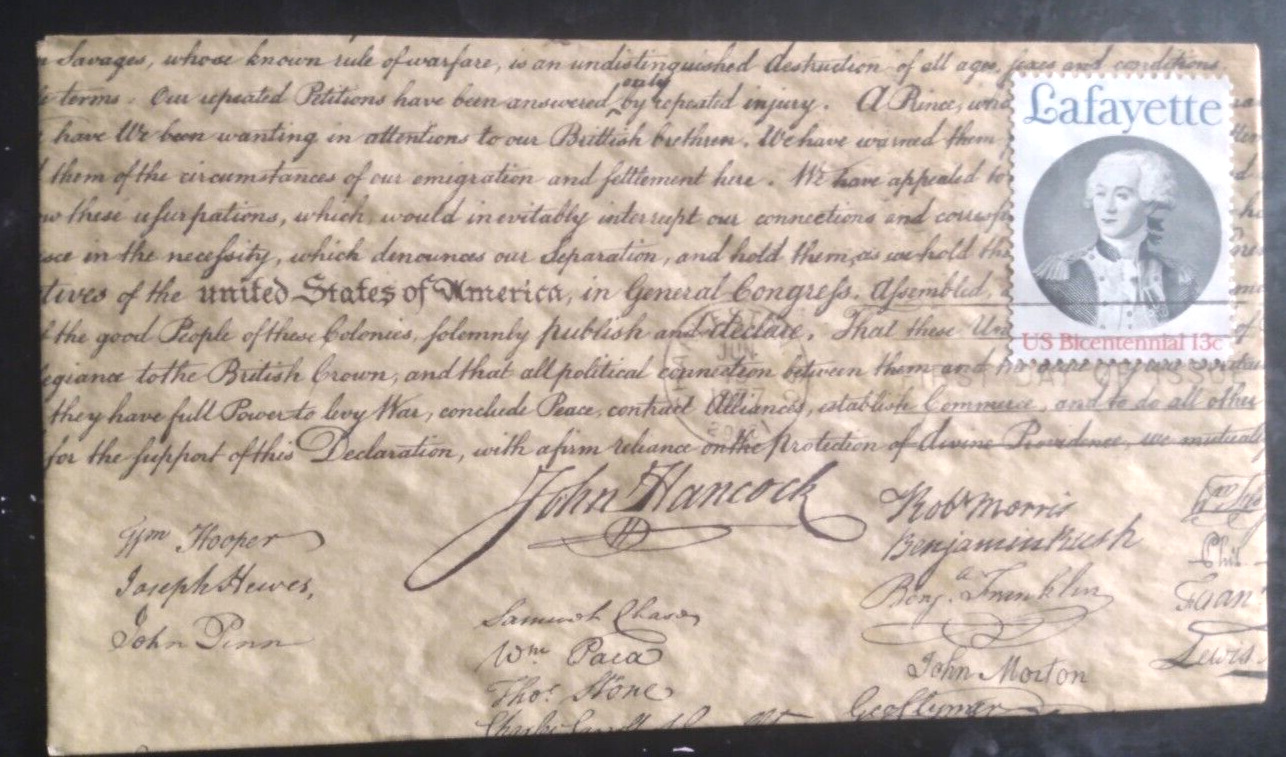 Savages, whose known rule of warfare, is an undistinguished destruction of all ages, sexes and conditions.
terms. Our repeated Petitions have been answered only by repeated injury. A Prince,
have We been wanting in attentions to our Brittish brethren. We have warned them
them of the circumstances of our emigration and settlement here. We have appealed to
these usurpations, which, would inevitably interrupt our connections and
in the necessity, which denounces our Separation, and hold them, as we hold the
of the united States of America, in General Congress, Assembled,
the good People of these Colonies, solemnly publish and declare, That these Un
to the British Crown, and that all political connection between them and
they have full Power to levy War, conclude Peace, contract Alliances, establish Commerce, and to do all other
for the support of this Declaration, with a firm reliance on the Protection of divine Providence, we mutually
Lafayette
US Bicentennial 13c
FIRST DAY OF ISSUE
1977
John Hancock
Wm Hooper
Joseph Hewes,
John Penn
Samuel Chase
Wm. Paca
Thos. Stone
Robt Morris
Benjamin Rush
Benja. Franklin
John Morton
Geo Clymer
Phil.
Lewis